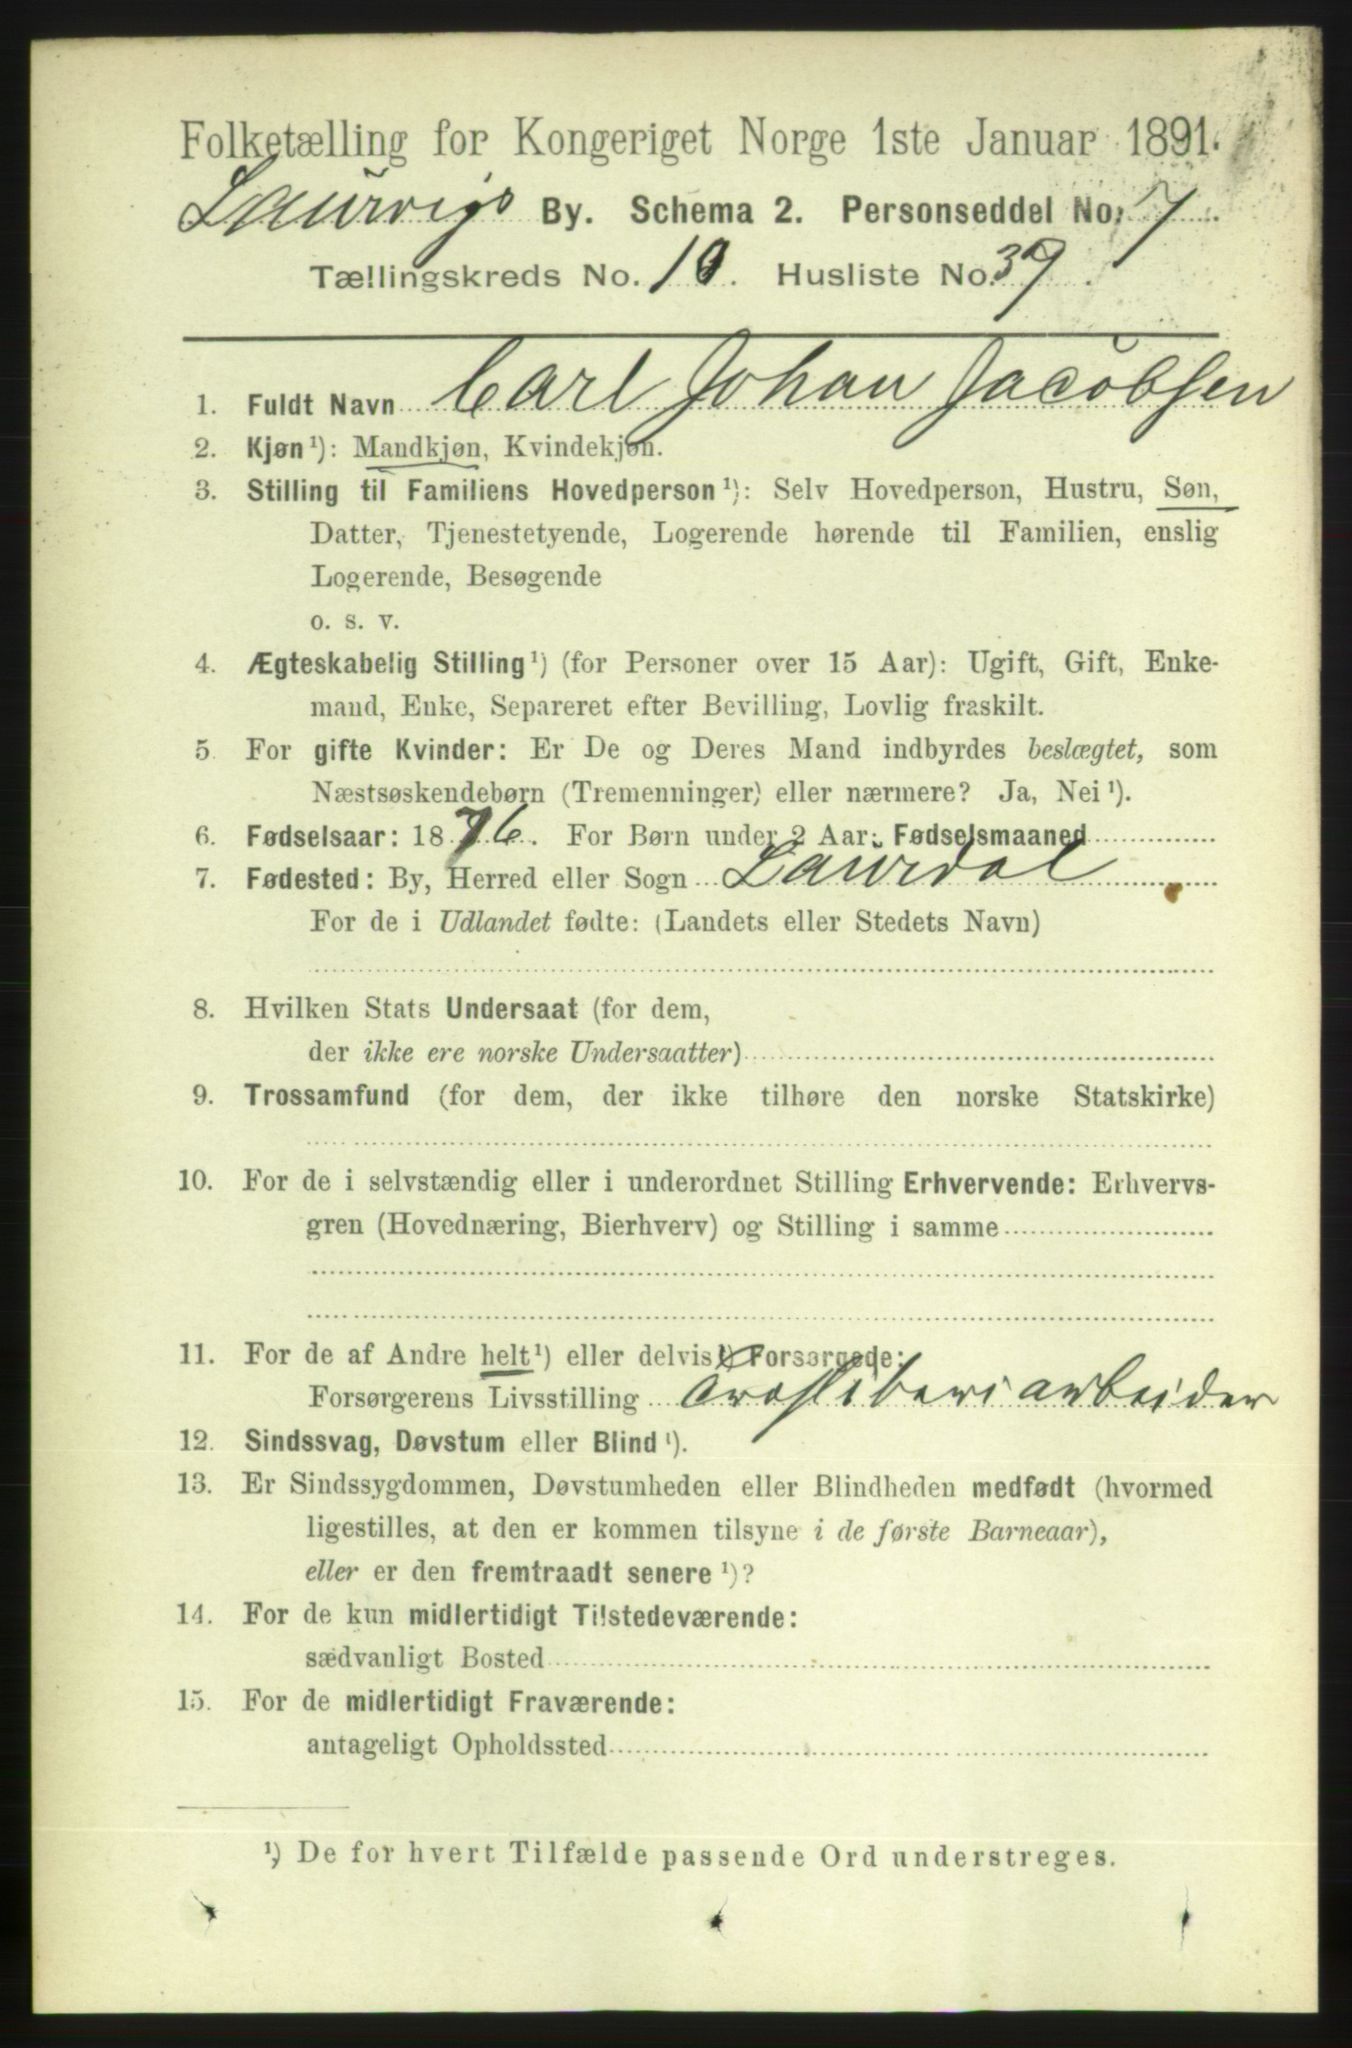 Folketælling for Kongeriget Norge 1ste Januar 1891.
Laurvigs By. Schema 2. Personseddel No. 7
Tællingskreds No. 10. Husliste No. 39.
1. Fuldt Navn Carl Johan Jacobsen
2. Kjøn¹): Mandkjøn, Kvindekjøn.
3. Stilling til Familiens Hovedperson¹): Selv Hovedperson, Hustru, Søn,
Datter, Tjenestetyende, Logerende hørende til Familien, enslig
Logerende, Besøgende
o. s. v.
4. Ægteskabelig Stilling¹) (for Personer over 15 Aar): Ugift, Gift, Enke-
mand, Enke, Separeret efter Bevilling, Lovlig fraskilt.
5. For gifte Kvinder: Er De og Deres Mand indbyrdes beslægtet, som
Næstsøskendebørn (Tremenninger) eller nærmere? Ja, Nei¹).
6. Fødselsaar: 1876. For Børn under 2 Aar: Fødselsmaaned
7. Fødested: By, Herred eller Sogn Laurdal
For de i Udlandet fødte: (Landets eller Stedets Navn)
8. Hvilken Stats Undersaat (for dem,
der ikke ere norske Undersaatter)
9. Trossamfund (for dem, der ikke tilhøre den norske Statskirke)
10. For de i selvstændig eller i underordnet Stilling Erhvervende: Erhvervs-
gren (Hovednæring, Bierhverv) og Stilling i samme
11. For de af Andre helt¹) eller delvis¹) Forsørgede:
Forsørgerens Livsstilling Træsliberiarbeider
12. Sindssvag, Døvstum eller Blind¹).
13. Er Sindssygdommen, Døvstumheden eller Blindheden medfødt (hvormed
ligestilles, at den er kommen tilsyne i de første Barneaar),
eller er den fremtraadt senere¹)?
14. For de kun midlertidigt Tilstedeværende:
sædvanligt Bosted
15. For de midlertidigt Fraværende:
antageligt Opholdssted
¹) De for hvert Tilfælde passende Ord understreges.